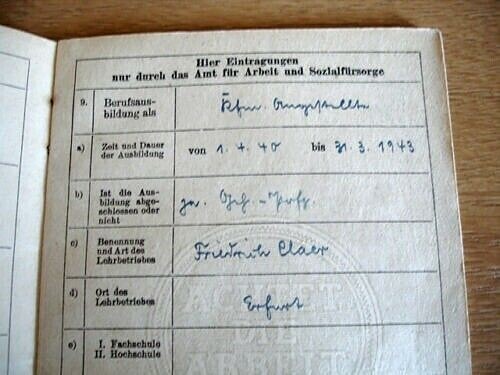 Hier Eintragungen
nur durch das Amt für Arbeit und Sozialfürsorge
9. Berufsaus-
bildung als
Kfm. Angestellte
a) Zeit und Dauer
der Ausbildung
von 1. 4. 40 bis 31. 3. 1943
b) Ist die Aus-
bildung abge-
schlossen oder
nicht
ja.
c) Benennung
und Art des
Lehrbetriebes
Friedrich Claer
d) Ort des
Lehrbetriebes
Erfurt
e) I. Fachschule
II. Hochschule
ACHTET
DIE
ARBEIT